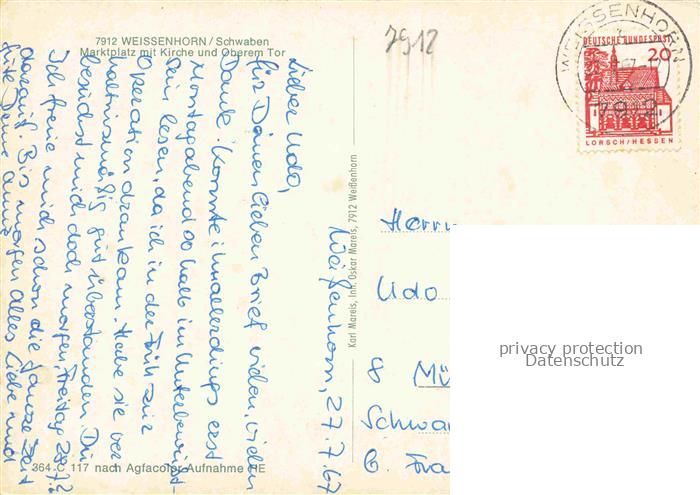 7912 WEISSENHORN / Schwaben
Marktplatz mit Kirche und Oberem Tor
7912
WEISSENHORN
7912
DEUTSCHE BUNDESPOST
20
LORSCH/HESSEN
Weißenhorn, 27.7.67
Lieber Udo,
für Deinen lieben Brief vielen, vielen
Dank. Konnte ihn allerdings erst
Montagabend so halb im Unterbewußt-
sein lesen, da ich in der Früh zur
Operation drankam. Habe sie ver-
hältnismäßig gut überstanden. Du
besuchst mich doch morgen, Freitag 28.7.?
Ich freue mich schon die ganze Zeit
darauf. Bis morgen alles Liebe und
Gute Deine
Karl Mareis, Inh. Oskar Mareis, 7912 Weißenhorn
Herrn
Udo
8 Mü
Schwa
b. Fra
364 C 117 nach Agfacolor-Aufnahme HE
privacy protection
Datenschutz